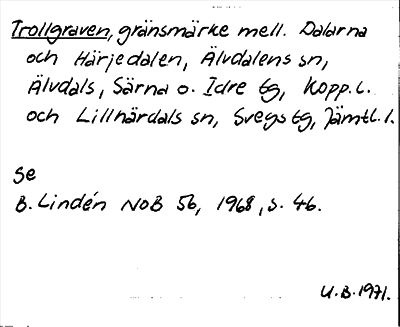 Trollgraven, gränsmärke mell. Dalarna
och Härjedalen, Älvdalens sn,
Älvdals, Särna o. Idre tg, Kopp. l.
och Lillhärdals sn, Svegs tg, Jämtl. l.
Se
B. Lindén NoB 56, 1968, s. 46.
U.B. 1971.